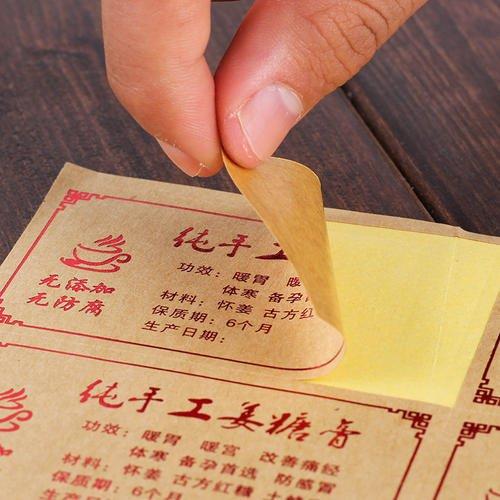 纯手工
无添加
无防腐
功效：暖胃 暖
体寒 备孕
材料：怀姜 古方红
保质期：6个月
生产日期：
纯手工姜糖膏
功效：暖胃 暖宫 改善痛经
体寒 备孕首选 防感冒
材料：怀姜 古方红糖
保质期：6个月
生产日期